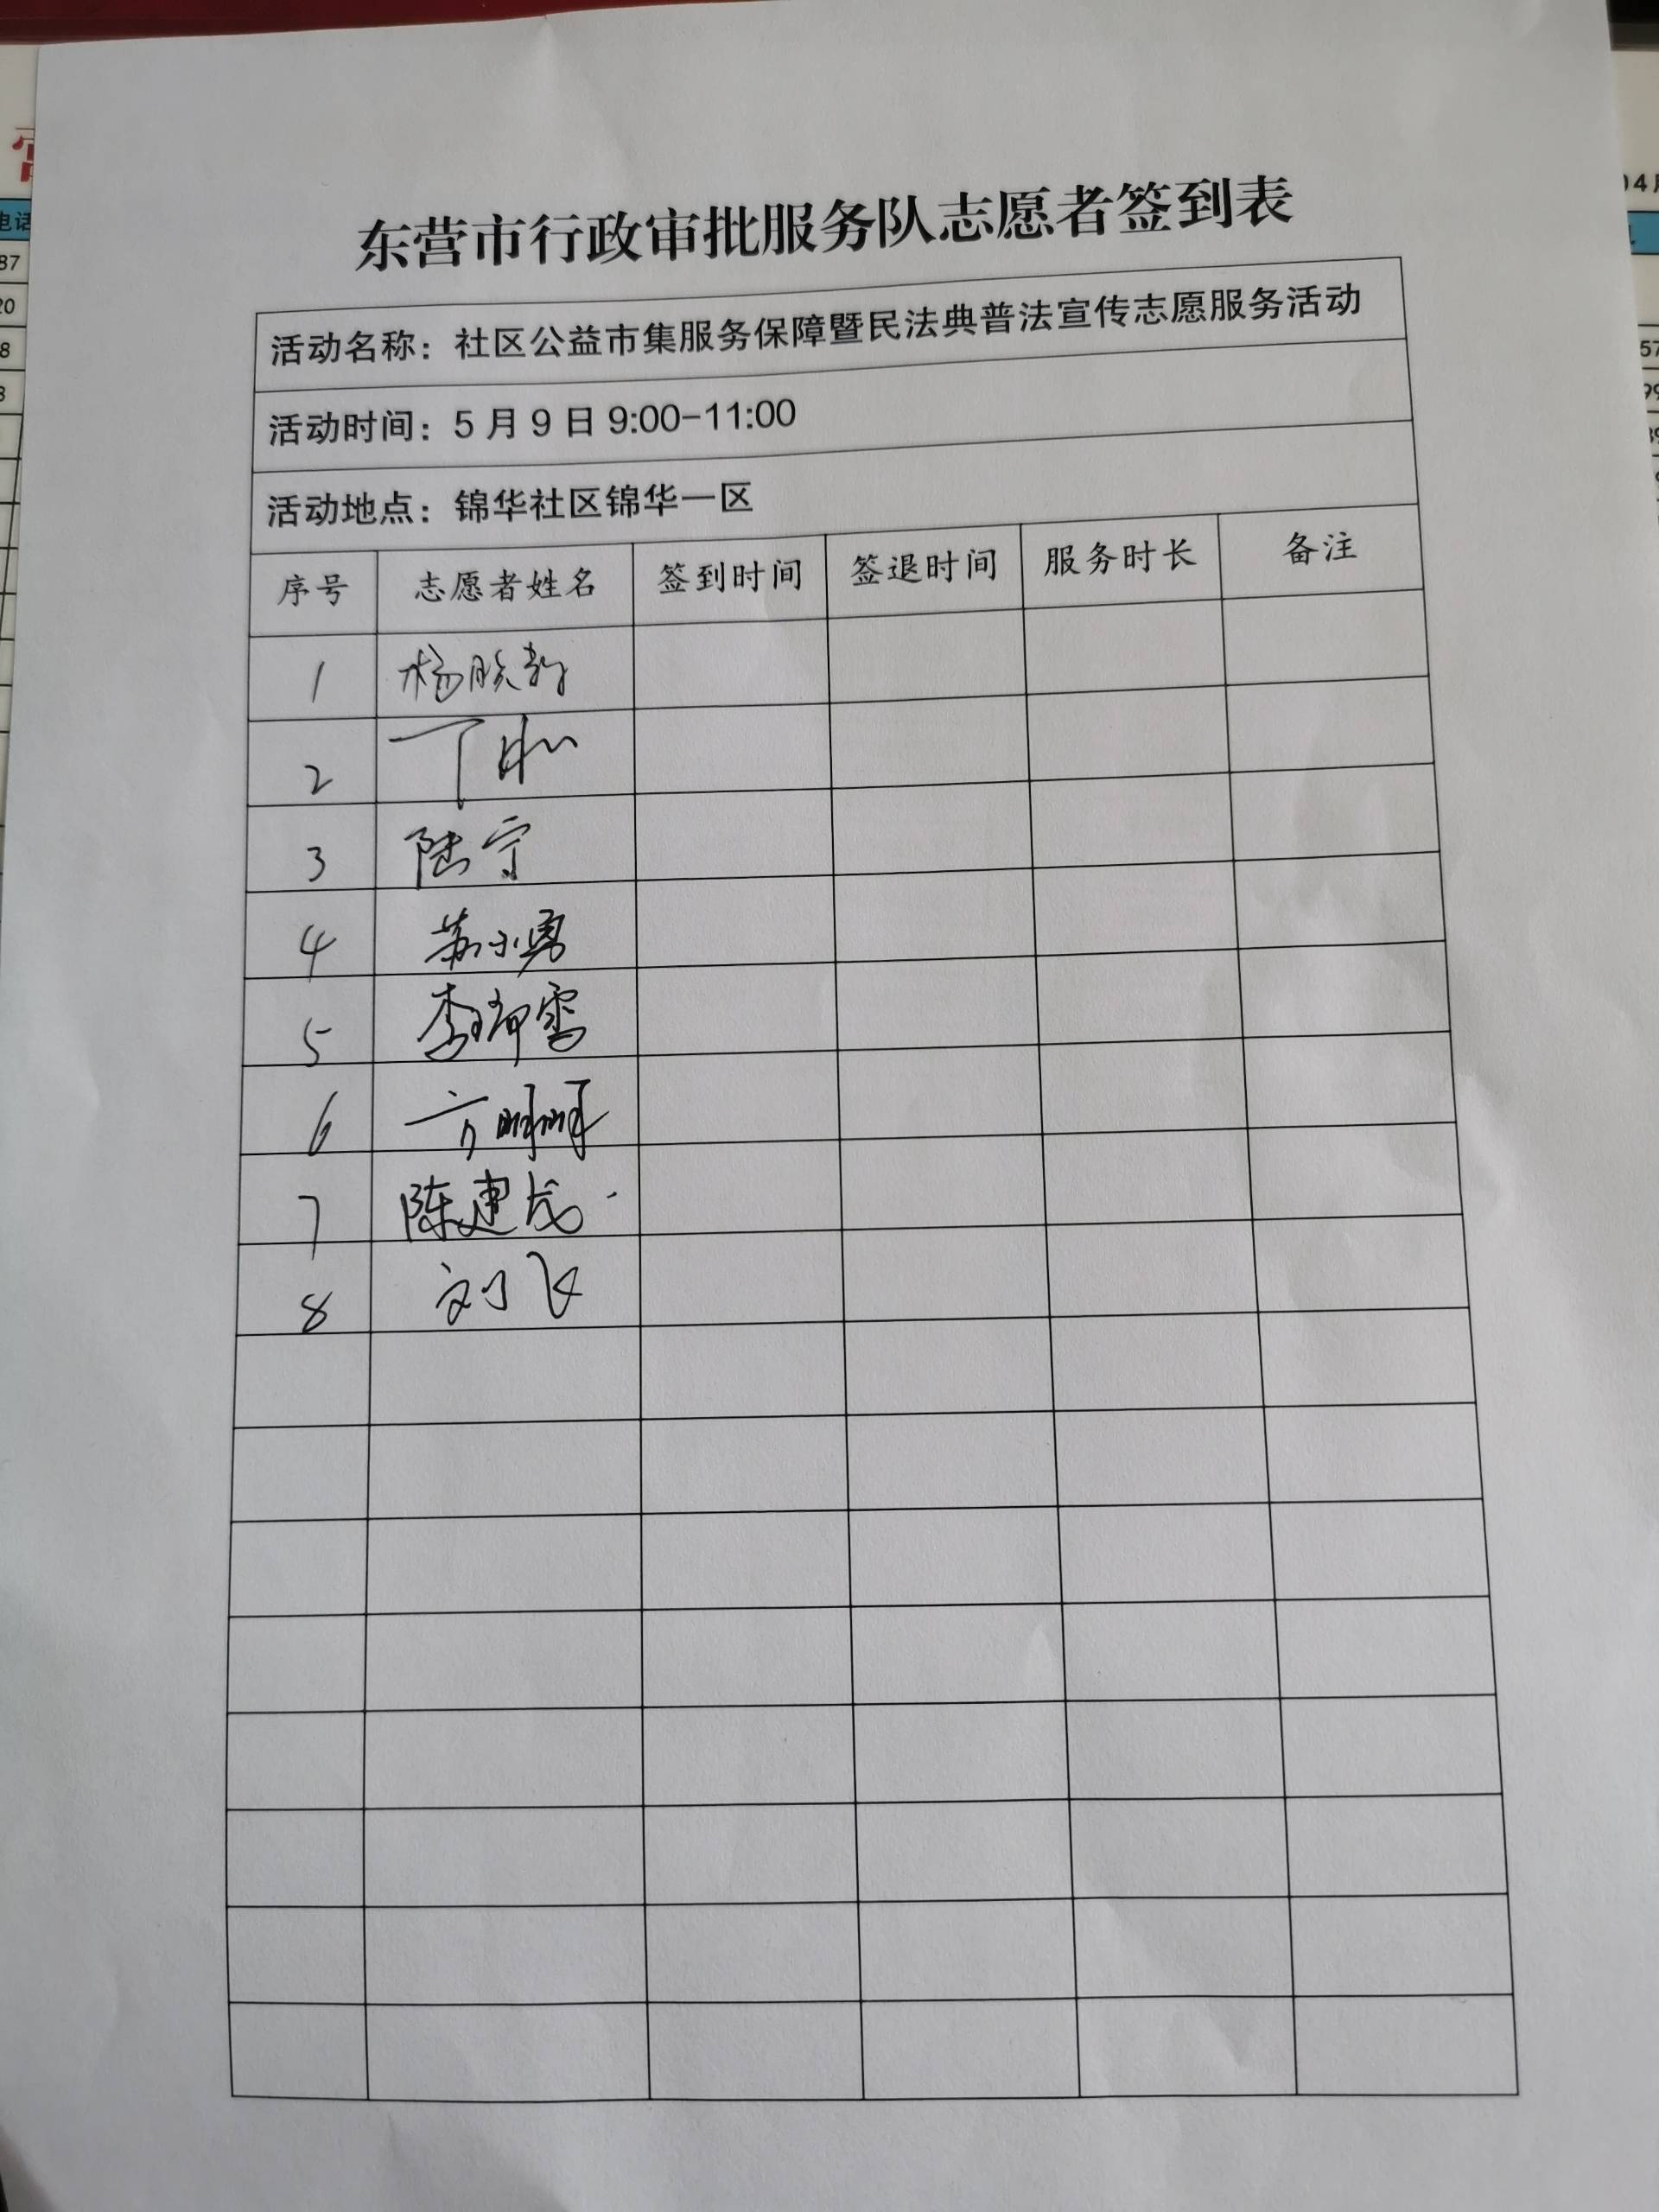 东营市行政审批服务队志愿者签到表
活动名称：社区公益市集服务保障暨民法典普法宣传志愿服务活动
活动时间：5月9日9:00-11:00
活动地点：锦华社区锦华一区
序号 志愿者姓名 签到时间 签退时间 服务时长 备注
1 杨晓
2 丁
3 陆宁
4 苏小勇
5 李瑞雪
6 方明明
7 陈建成
8 刘飞
电话
87
20
8
57
99